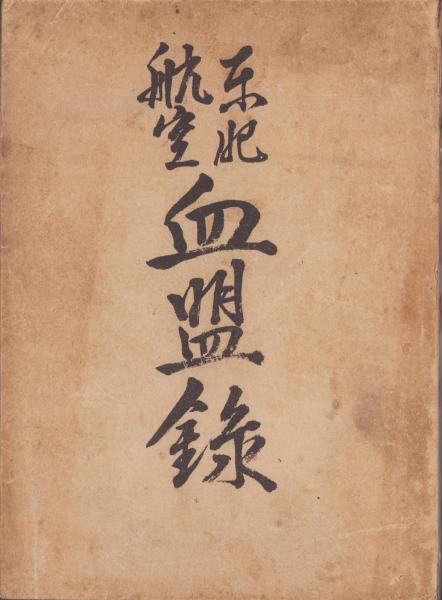 東肥
航空
血盟錄